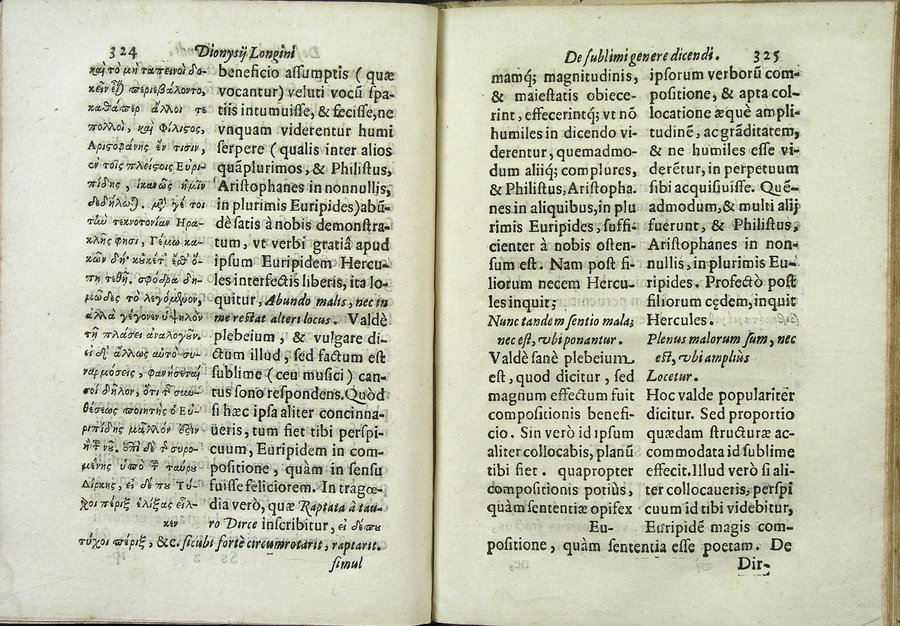 324
Dionysij Longini
καὶ τὸ μὴ ταπεινοὶ δο-
κεῖν περιεβάλοντο,
καθάπερ ἄλλοι τε
πολλοὶ, καὶ Φίλιστος,
Αριστοφάνης ἔν τισιν,
ἐν τοῖς πλείστοις Εὐρι-
πίδης, ἱκανῶς ἡμῖν
δεδήλω). μζ γέ τοι
τὴν τεκνοκτονίαν Ηρα-
κλῆς φησι, Γέμω κα-
κῶν δὴ· κὀκέτ' ἔσθ' ὅ-
πη τεθῇ. σφόδρα δη-
μῶδες τὸ λεγόμενον,
ἀλλὰ γέγονεν ὑψηλὸν
τῇ πλάσει ἀναλογοῦν.
εἰ δ' ἄλλως αὐτὸ συ-
ναρμόσεις, φανήσεταί
σοι δῆλον, ὅτι τ συν-
θέσεως ποιητὴς ὁ Εὐ-
ριπίδης μᾶλλόν ἐστιν
ἢ τ νοῦ. ἐπὶ δὲ τ συρο-
μένης ὑπὸ τ ταύρου
Δίρκης, εἰ δέ που τύ-
χοι πέριξ ἑλίξας εἷλ-
κεν
beneficio assumptis ( quæ
vocantur) veluti vocū spa-
tiis intumuisse, & fecisse, ne
vnquam viderentur humi
serpere ( qualis inter alios
quāplurimos, & Philistus,
Aristophanes in nonnullis,
in plurimis Euripides) abū-
dè satis à nobis demonstra-
tum, vt verbi gratiâ apud
ipsum Euripidem Hercu-
les interfectis liberis, ita lo-
quitur, Abundo malis, nec in
me restat alteri locus. Valdè
plebeium, & vulgare di-
ctum illud, sed factum est
sublime ( ceu musici ) can-
tus sono respondens. Quòd
si hæc ipsa aliter concinna-
ueris, tum fiet tibi perspi-
cuum, Euripidem in com-
positione, quàm in sensu
fuisse feliciorem. In tragœ-
dia verò, quæ Raptata à tau-
ro Dirce inscribitur, εἰ δέ που
τύχοι πέριξ, &c. sicubi fortè circumrotarit, raptarit.
simul
De sublimi genere dicendi.
325
mamq; magnitudinis,
& maiestatis obiece-
rint, effecerintq; vt nō
humiles in dicendo vi-
derentur, quemadmo-
dum aliiq; complures,
& Philistus, Aristopha-
nes in aliquibus, in plu
rimis Euripides, suffi-
cienter à nobis osten-
sum est. Nam post fi-
liorum necem Hercu-
les inquit;
Nunc tandem sentio mala;
nec est, vbi ponantur.
Valdè sanè plebeium
est, quod dicitur, sed
magnum effectum fuit
compositionis benefi-
cio. Sin verò id ipsum
aliter collocabis, planū
tibi fiet. quapropter
compositionis potiùs,
quàm sententiæ opifex
Eu-
ipsorum verborū com-
positione, & apta col-
locatione æquè ampli-
tudinē, ac grāditatem,
& ne humiles esse vi-
derētur, in perpetuum
sibi acquisuisse. Quē-
admodum, & multi alij
fuerunt, & Philistus,
Aristophanes in non-
nullis, in plurimis Eu-
ripides. Profectò post
filiorum cędem, inquit
Hercules.
Plenus malorum sum, nec
est, vbi amplius
Locetur.
Hoc valde populariter
dicitur. Sed proportio
quædam structuræ ac-
commodata id sublime
effecit. Illud verò si ali-
ter collocaueris, perspi
cuum id tibi videbitur,
Euripidē magis com-
positione, quàm sententia esse poetam. De
Dir-